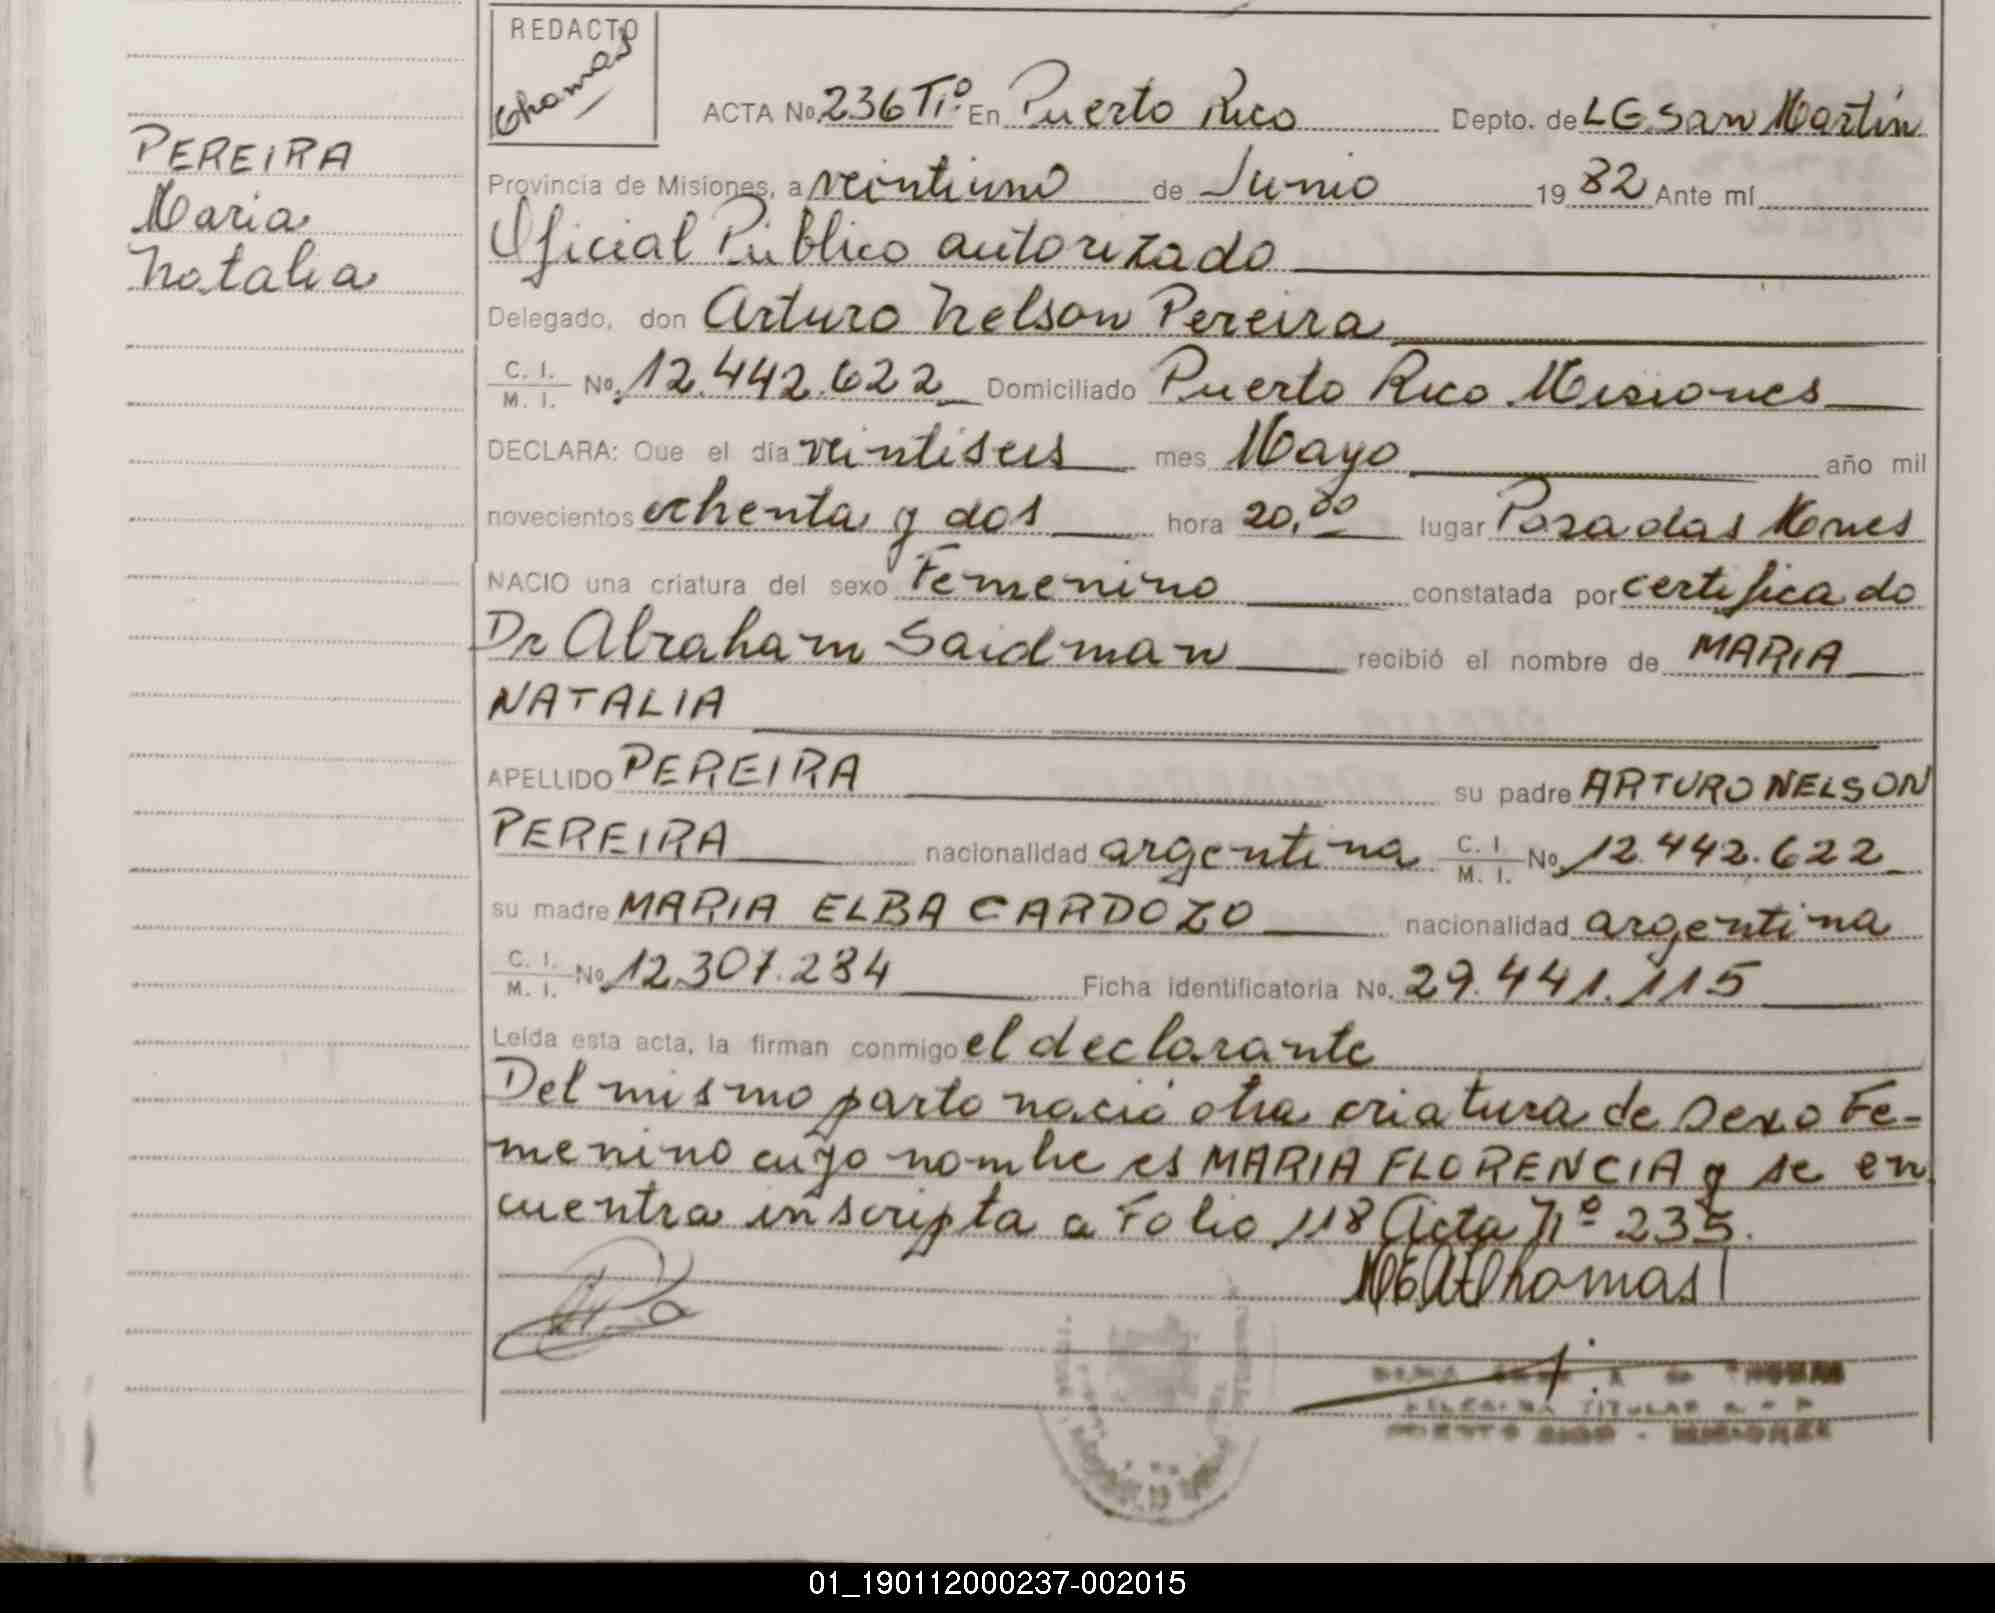 REDACTO
Thomas
ACTA No. 236 Tº. I En Puerto Rico Depto. de L G. San Martín
PEREIRA
Maria
Natalia
Provincia de Misiones, a veintiuno de Junio 19 82 Ante mí
Oficial Público autorizado
Delegado, don Arturo Nelson Pereira
C. I.
M. I. No. 12.442.622 Domiciliado Puerto Rico Misiones
DECLARA: Que el día veintiseis mes Mayo año mil
novecientos ochenta y dos hora 20,00 lugar Posadas Mnes
NACIO una criatura del sexo Femenino constatada por certificado
Dr Abraham Saidman recibió el nombre de MARIA
NATALIA
APELLIDO PEREIRA su padre ARTURO NELSON
PEREIRA nacionalidad argentina C. I. M. I. No. 12.442.622
su madre MARIA ELBA CARDOZO nacionalidad argentina
C. I. M. I. No. 12.307.284 Ficha identificatoria No. 29.441.115
Leída esta acta, la firman conmigo el declarante
Del mismo parto nació otra criatura de sexo Fe-
menino cuyo nombre es MARIA FLORENCIA y se en
cuentra inscripta a Folio 118 Acta Nº 235.
Thomas
TITULAR
PUERTO RICO - MISIONES
01_190112000237-002015